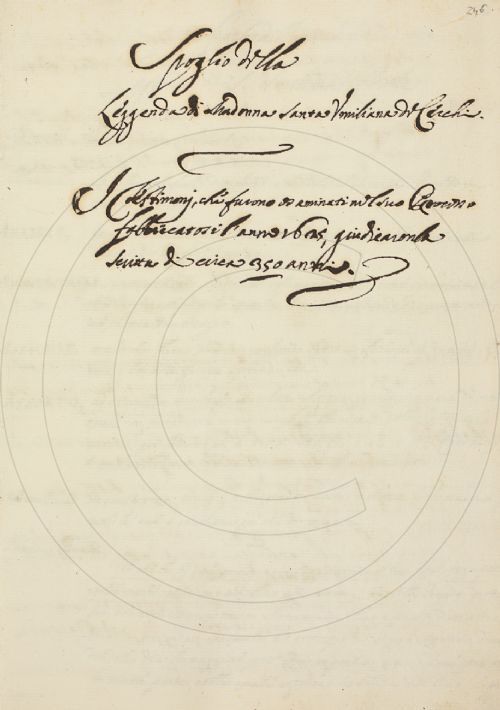 246.
Spoglio della
Leggenda di Madonna Santa Umiliana de Cerchi.
I Testimonj, che furono esaminati nel suo Processo
fabbricatosi l'anno 1625, giudicaronla
scritta di circa 350 anni.